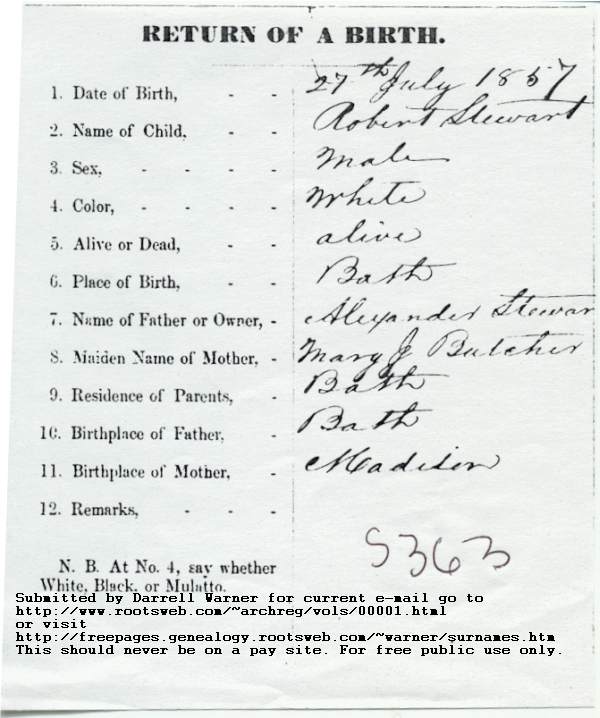 RETURN OF A BIRTH.
1. Date of Birth, - - 27th July 1857
2. Name of Child, - - Robert Stewart
3. Sex, - - - - Male
4. Color, - - - - White
5. Alive or Dead, - - alive
6. Place of Birth, - - Bath
7. Name of Father or Owner, - Alexander Stewar
8. Maiden Name of Mother, - Mary J Butcher
9. Residence of Parents, - Bath
10. Birthplace of Father, - Bath
11. Birthplace of Mother, - Madison
12. Remarks, - - -
S363
N. B. At No. 4, say whether
White, Black, or Mulatto.
Submitted by Darrell Warner for current e-mail go to
http://www.rootsweb.com/~archreg/vols/00001.html
or visit
http://freepages.genealogy.rootsweb.com/~warner/surnames.htm
This should never be on a pay site. For free public use only.